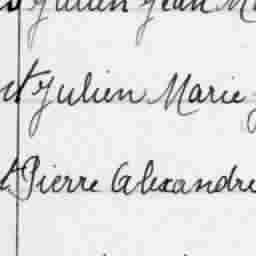 Julien Jean
Julien Marie
Pierre Alexandre